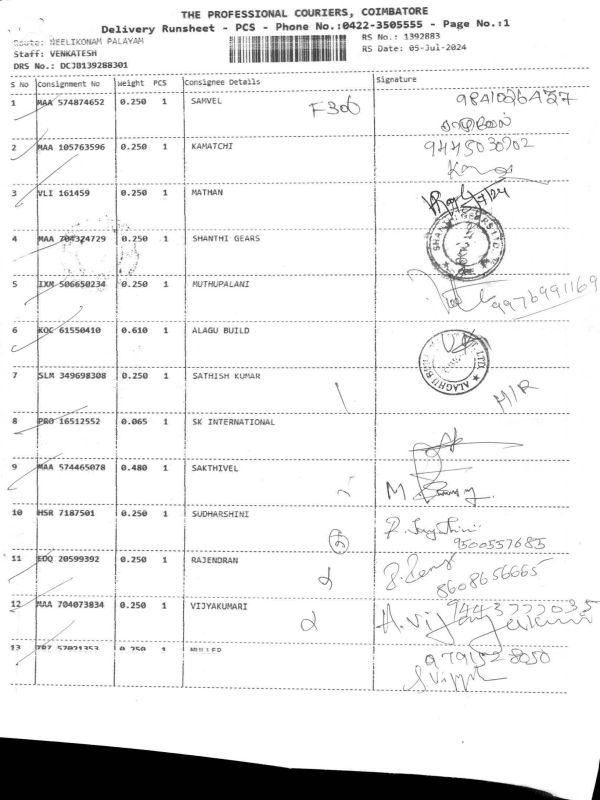 THE PROFESSIONAL COURIERS, COIMBATORE
Delivery Runsheet - PCS - Phone No.:0422-3505555 - Page No.:1
Route: NEELIKONAM PALAYAM
RS No.: 1392883
Staff: VENKATESH
RS Date: 05-Jul-2024
DRS No.: DCJB139288301
S No Consignment No Weight PCS Consignee Details Signature
1 MAA 574874652 0.250 1 SAMVEL F306
2 MAA 105763596 0.250 1 KAMATCHI 9445030702
3 VLI 161459 0.250 1 MATHAN
4 MAA 704324729 0.250 1 SHANTHI GEARS SHANTHI GEARS LTD.
5 IXM 506650234 0.250 1 MUTHUPALANI 9976991169
6 KOC 61550410 0.610 1 ALAGU BUILD
7 SLM 349698308 0.250 1 SATHISH KUMAR H/R
8 PRO 16512552 0.065 1 SK INTERNATIONAL
9 MAA 574465078 0.480 1 SAKTHIVEL
10 HSR 7187501 0.250 1 SUDHARSHINI
9500557685
11 EDQ 20599392 0.250 1 RAJENDRAN
8608656665
12 MAA 704073834 0.250 1 VIJYAKUMARI
13 57021353 0.250 1 MULLER